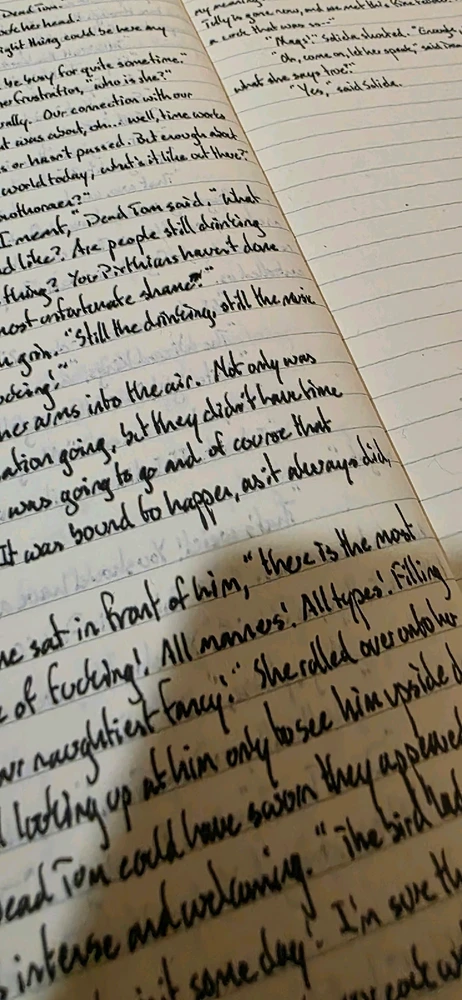 Dead Tom."
ocker head.
ight thing could be here any
be busy for quite sometime."
her frustration, "who is she?"
ally. Our connection with our
t was about, oh... well, time works
s or hasn't passed. But enough about
world today, what's it like out there?
I ment," Dead Tom said, "what
d like? Are people still drinking
thing? You Pirthians haven't done
most unfortunate shame?"
grin. "Still the drinking, still the music
ocking!"
her arms into the air. Not only was
ation going, but they didn't have time
was going to go and of course that
It was bound to happen, as it always did,
he sat in front of him, "there is the most
e of fucking! All manners! All types! Filling
ur naughtiest fancy!" She rolled over onto her
d looking up at him only to see him upside d
ead Tom could have sworn they appeared
s intense and welcoming. "The bird lad
it some day! I'm sure th
my meaning
Tully's gone now, and
a cock that was so..."
"Mags!" Salida
"Oh, come on, let her speak," said
what she says true?"
"Yes," said Salida.